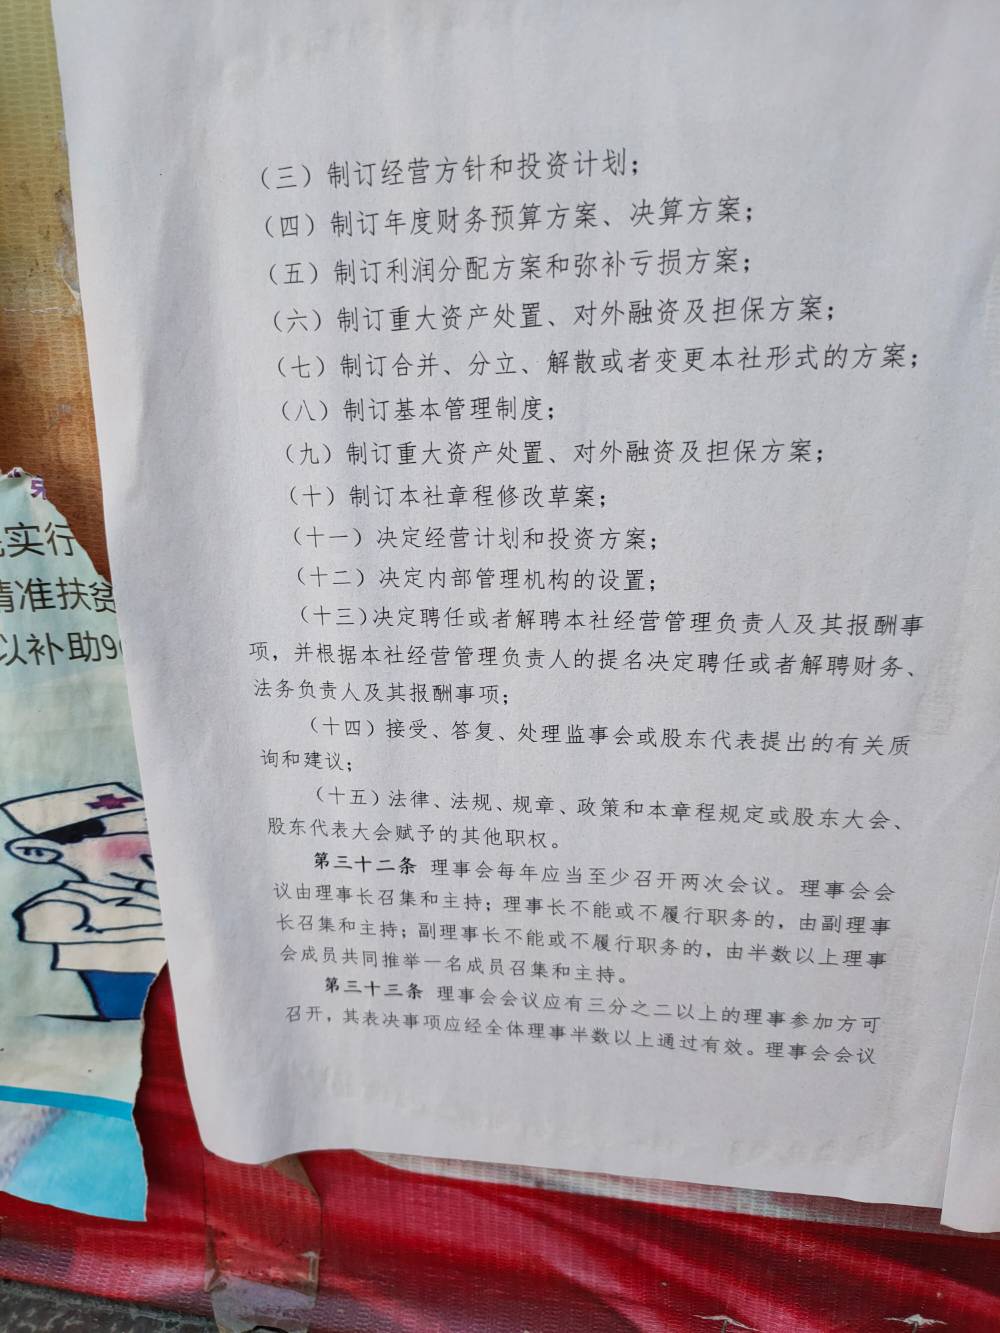 （三）制订经营方针和投资计划；
（四）制订年度财务预算方案、决算方案；
（五）制订利润分配方案和弥补亏损方案；
（六）制订重大资产处置、对外融资及担保方案；
（七）制订合并、分立、解散或者变更本社形式的方案；
（八）制订基本管理制度；
（九）制订重大资产处置、对外融资及担保方案；
（十）制订本社章程修改草案；
（十一）决定经营计划和投资方案；
（十二）决定内部管理机构的设置；
（十三）决定聘任或者解聘本社经营管理负责人及其报酬事
项，并根据本社经营管理负责人的提名决定聘任或者解聘财务、
法务负责人及其报酬事项；
（十四）接受、答复、处理监事会或股东代表提出的有关质
询和建议；
（十五）法律、法规、规章、政策和本章程规定或股东大会、
股东代表大会赋予的其他职权。
第三十二条 理事会每年应当至少召开两次会议。理事会会
议由理事长召集和主持；理事长不能或不履行职务的，由副理事
长召集和主持；副理事长不能或不履行职务的，由半数以上理事
会成员共同推举一名成员召集和主持。
第三十三条 理事会会议应有三分之二以上的理事参加方可
召开，其表决事项应经全体理事半数以上通过有效。理事会会议
实行
精准扶贫
以补助9